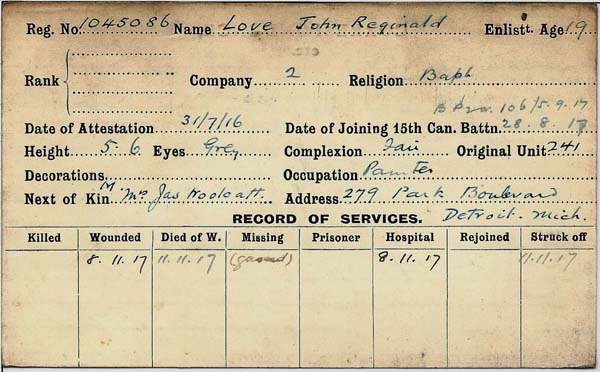 Reg. No. 1045086 Name Love John Reginald Enlistt. Age 19
Rank Company 2 Religion Bapt
106/5.9.17
Date of Attestation 31/7/16 Date of Joining 15th Can. Battn. 28.8.17
Height 5.6 Eyes Grey Complexion Fair Original Unit 241
Decorations Occupation Painter
Next of Kin M Mrs Jas Woolcatt Address 279 Park Boulevard
RECORD OF SERVICES. Detroit. Mich.
Killed Wounded Died of W. Missing Prisoner Hospital Rejoined Struck off
8.11.17 11.11.17 (gassed) 8.11.17 11.11.17